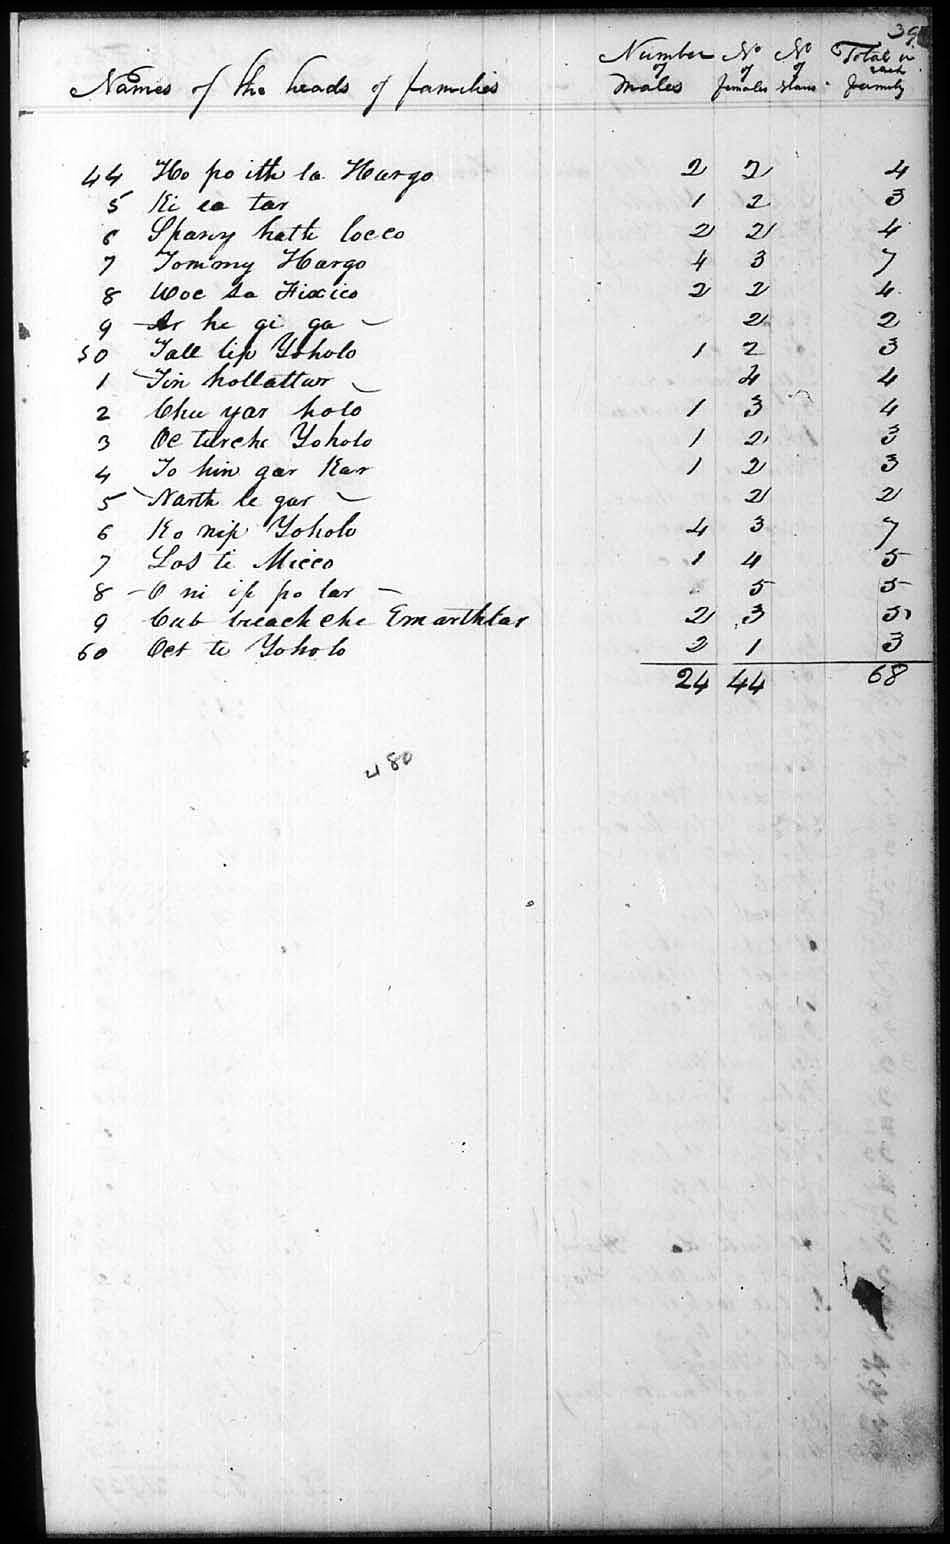 39
Names of the heads of families Number of Males No of females No of slaves Total in each family
44 Ho po ith la Hargo 2 2 4
5 Ki ea tar 1 2 3
6 Spany hatke locco 2 2 4
7 Tommy Hargo 4 3 7
8 Woc sa Fixico 2 2 4
9 – Ar he gi ga – 2 2
50 Tall lip Yoholo 1 2 3
1 – Tin hollattur – 4 4
2 Chu yar holo 1 3 4
3 Oc turche Yoholo 1 2 3
4 To hin gar Kar 1 2 3
5 – Narth le gar – 2 2
6 Ko nip Yoholo 4 3 7
7 Los te Micco 1 4 5
8 – O ni ip po lar – 5 5
9 Cub beach che Emarthlar 2 3 5
60 Oct te Yoholo 2 1 3
24 44 68
480